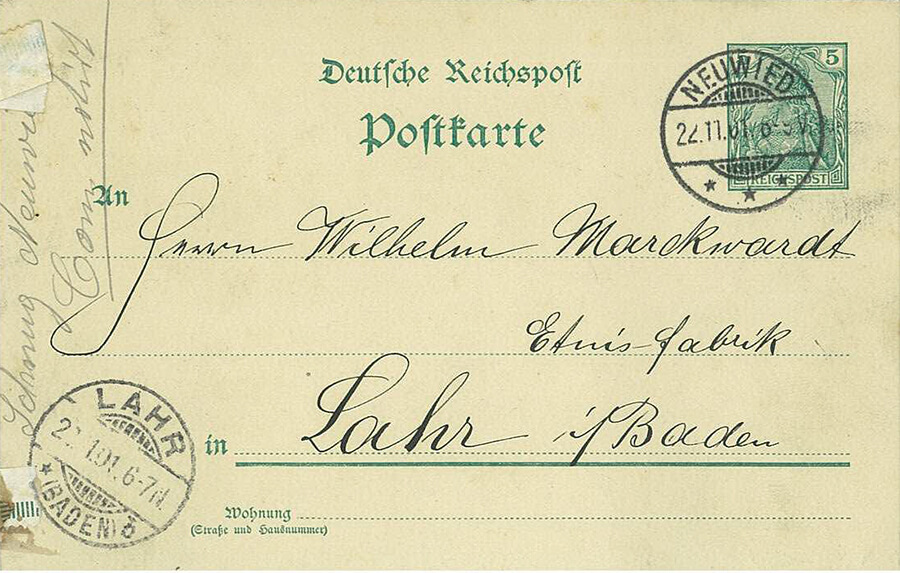 Deutsche Reichspost
Postkarte
5
REICHSPOST
NEUWIED
22.11.01. 6-9V.
An
Herrn Wilhelm Marckwardt
Etuis-fabrik
in Lahr i/Baden
Wohnung
(Straße und Hausnummer)
LAHR
22.11.01. 6-7N.
(BADEN)